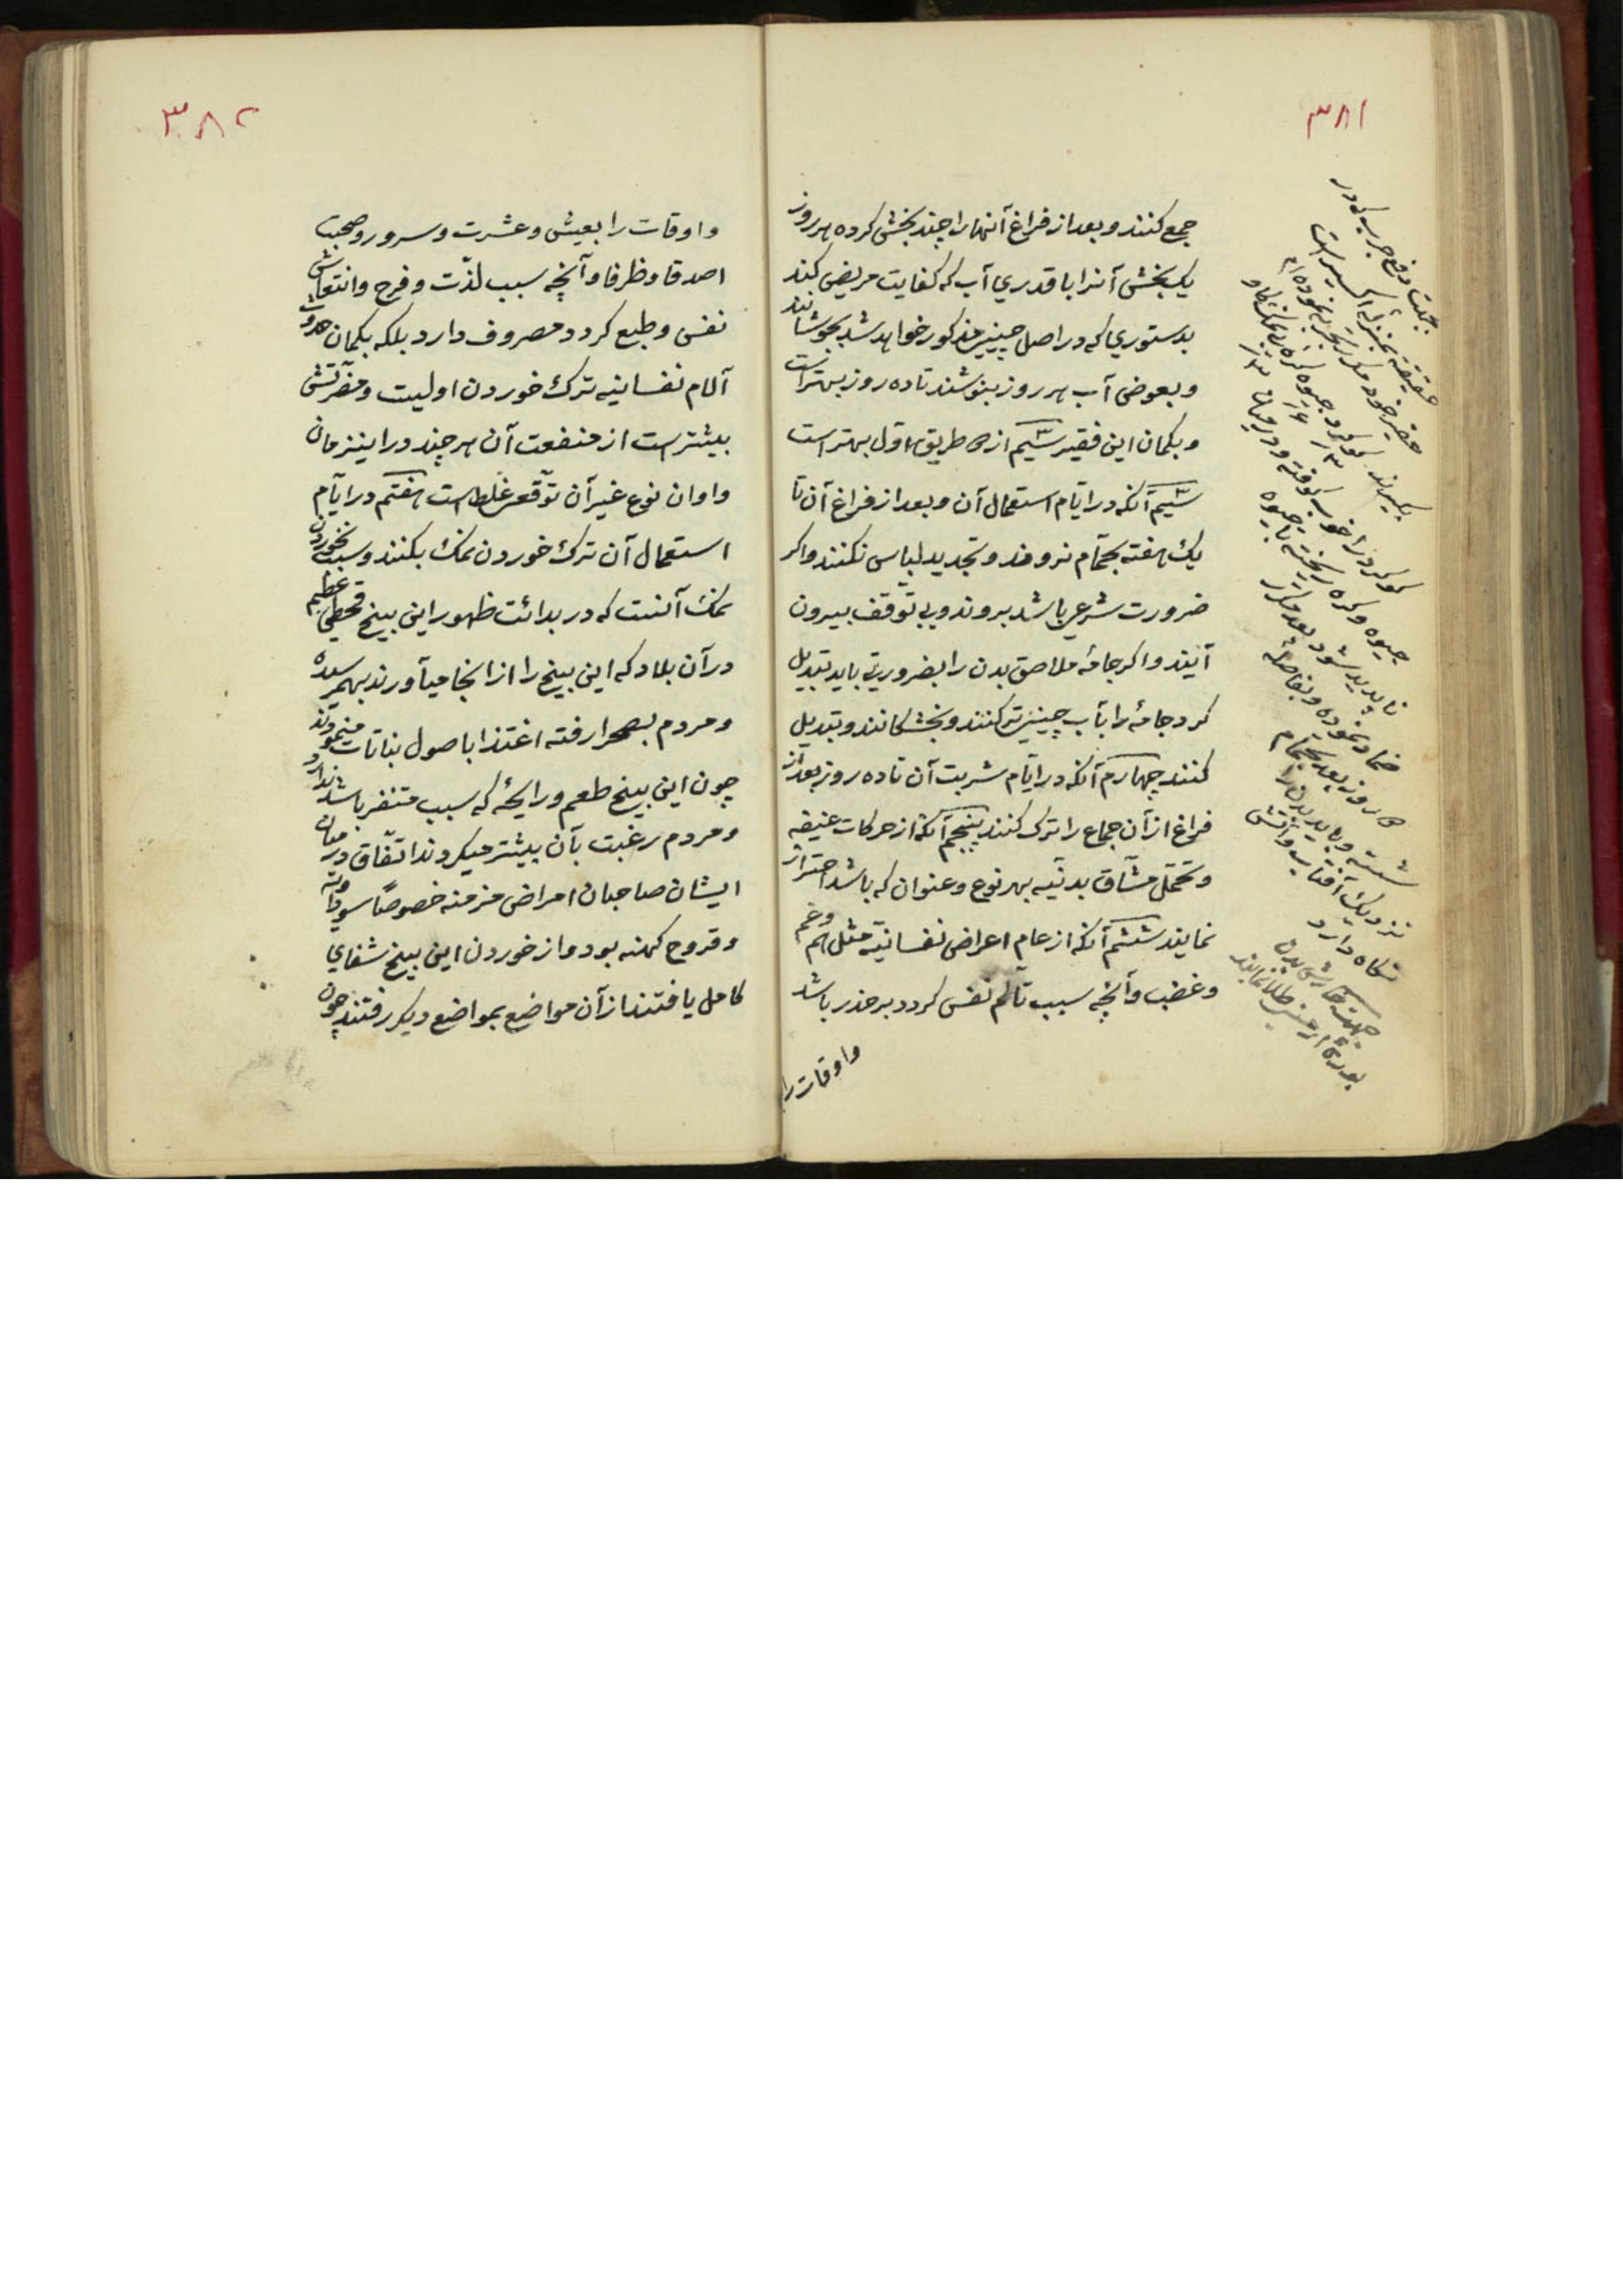 ۳۸۱
جمع کنند و بعد از فراغ آنها را چند بخش کرده هر روز
یک بخش آنرا با قدری آب که کفایت مریض کند
بدستوری که در اصل چینی مذکور خواهد شد بجوشانند
و بعوض آب هر روز بنوشند تا ده روز بهتر است
و بکمان این فقیر سیم از طریق اول بهتر است
سیم آنکه در ایام استعمال آن و بعد از فراغ آن تا
یک هفته بحمام نروند و تجدید لباس نکنند و اکر
ضرورت شرعی باشد بروند و بی توقف بیرون
آیند و اکر جامهٔ ملاصق بدن را بضرورتی باید تبدیل
کرد جامهٔ را بآب چینی تر کنند و بخشکانند و تبدیل
کنند چهارم آنکه در ایام شربت آن تا ده روز بعد از
فراغ از آن جماع را ترک کنند پنجم آنکه از حرکات عنیفه
و تحمل مشاق بدنیه بهر نوع و عنوان که باشد احتراز
نمایند ششم آنکه از عام اعراض نفسانیه مثل هم و غم
و غضب و آنچه سبب تألم نفس کردد بر حذر باشد
و اوقات را
جهت دفع جرب که در
حقیقة بمنزلهٔ اکسیر است
حقیر خود مکرر تجربه نموده‌ام
بکیرند کوکرد جیوه
کوکرد را خوب کوفته و در میان
جیوه و کره ریخته با جیوه
ناپدید شود بعد مکرر
ضماد نموده و بفاصلهٔ
روز بعد بحمام
شسته و باید بدن را
نزدیک آفتاب و آتش
نکاه دارد
جهت خارش بدن
بورهٔ ارمنی طلا نمایند
۳۸۲
و اوقات را بعیش و عشرت و سرور و صحبت
اصدقا و ظرفا و آنچه سبب لذت و فرح و انتعاش
نفس و طبع کردد مصروف دارد بلکه بکمان حدوث
آلام نفسانیه ترک خوردن اولیت و مضرتش
بیشتر است از منفعت آن هر چند در اینزمان
و اوان نوع غیر آن توقع غلط است هفتم در ایام
استعمال آن ترک خوردن نمک بکنند و سبب نخوردن
نمک آنست که در بدائت ظهور این بیخ قحطی عظیم
در آن بلاد که این بیخ را از انجا میآورند بهم رسیده
و مردم بصحرا رفته اغتذا باصول نباتات مینمودند
چون این بیخ طعم و رایحهٔ که سبب متنفر باشد ندارد
و مردم رغبت بآن بیشتر میکردند اتفاق در میان
ایشان صاحبان امراض مزمنه خصوصاً سوداویه
و قروح کهنه بود و از خوردن این بیخ شفای
کامل یافتند از آن مواضع بمواضع دیکر رفتند چون